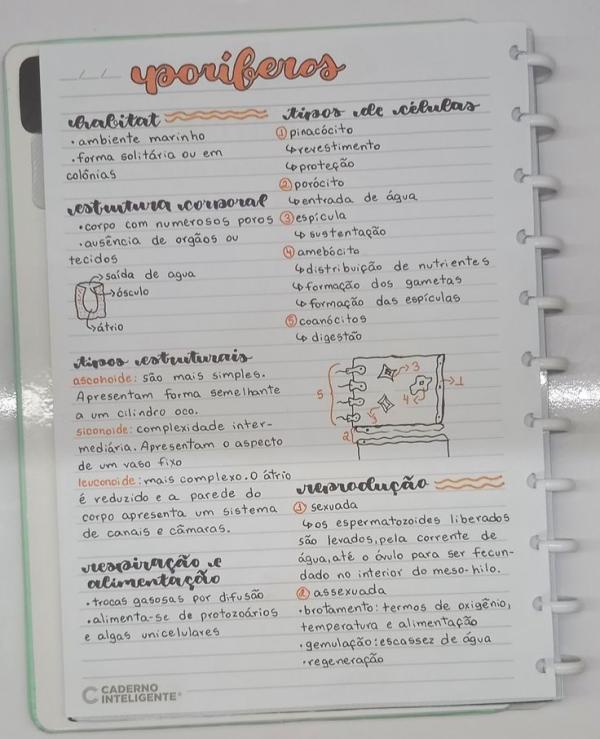 poríferos
habitat
• ambiente marinho
• forma solitária ou em
colônias
estrutura corporal
• corpo com numerosos poros
• ausência de orgãos ou
tecidos
saída de agua
ósculo
átrio
tipos estruturais
asconoide: são mais simples.
Apresentam forma semelhante
a um cilindro oco.
siconoide: complexidade inter-
mediária. Apresentam o aspecto
de um vaso fixo
leuconoide: mais complexo. O átrio
é reduzido e a parede do
corpo apresenta um sistema
de canais e câmaras.
respiração e
alimentação
• trocas gasosas por difusão
• alimenta-se de protozoários
e algas unicelulares
tipos de células
① pinacócito
↳ revestimento
↳ proteção
② porócito
↳ entrada de água
③ espícula
↳ sustentação
④ amebócito
↳ distribuição de nutrientes
↳ formação dos gametas
↳ formação das espículas
⑤ coanócitos
↳ digestão
5
3
1
4
3
2
reprodução
① sexuada
↳ os espermatozoides liberados
são levados, pela corrente de
água, até o óvulo para ser fecun-
dado no interior do meso-hilo.
② assexuada
• brotamento: termos de oxigênio,
temperatura e alimentação
• gemulação: escassez de água
• regeneração
CADERNO
INTELIGENTE®